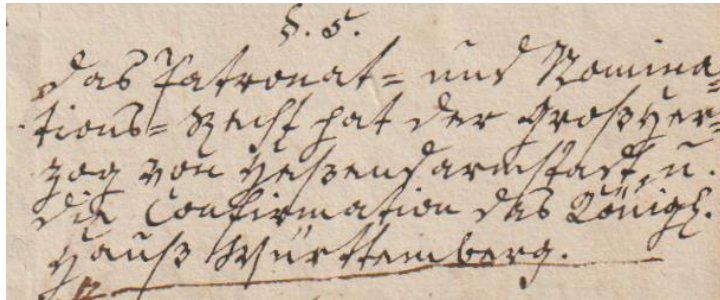 §. 5.
Das Patronat= und Nomina=
tions=Recht hat der Großher=
zog von Heßendarmstadt, u.
die Confirmation das Königl.
Hauß Württemberg.